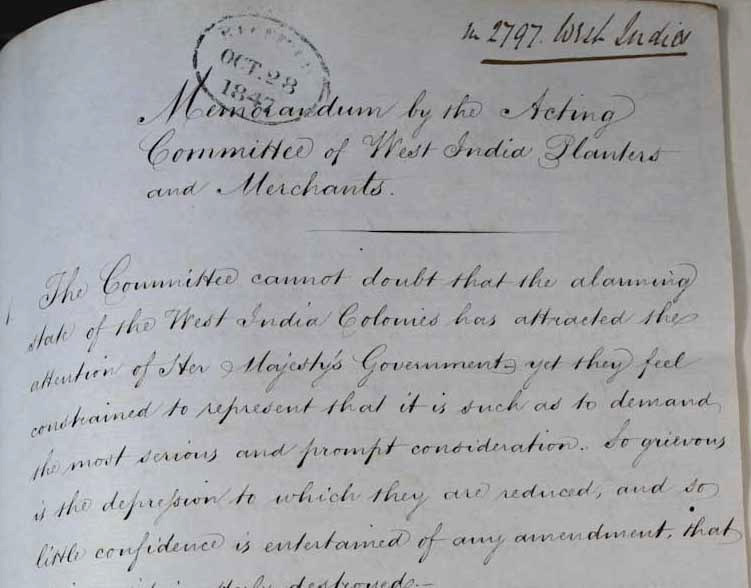 In 2797. West Indies
RECEIVED
OCT. 28
1847
Memorandum by the Acting
Committee of West India Planters
and Merchants.
The Committee cannot doubt that the alarming
state of the West India Colonies has attracted the
attention of Her Majesty's Government, yet they feel
constrained to represent that it is such as to demand
the most serious and prompt consideration. So grievous
is the depression to which they are reduced, and so
little confidence is entertained of any amendment, that
destroyed.—